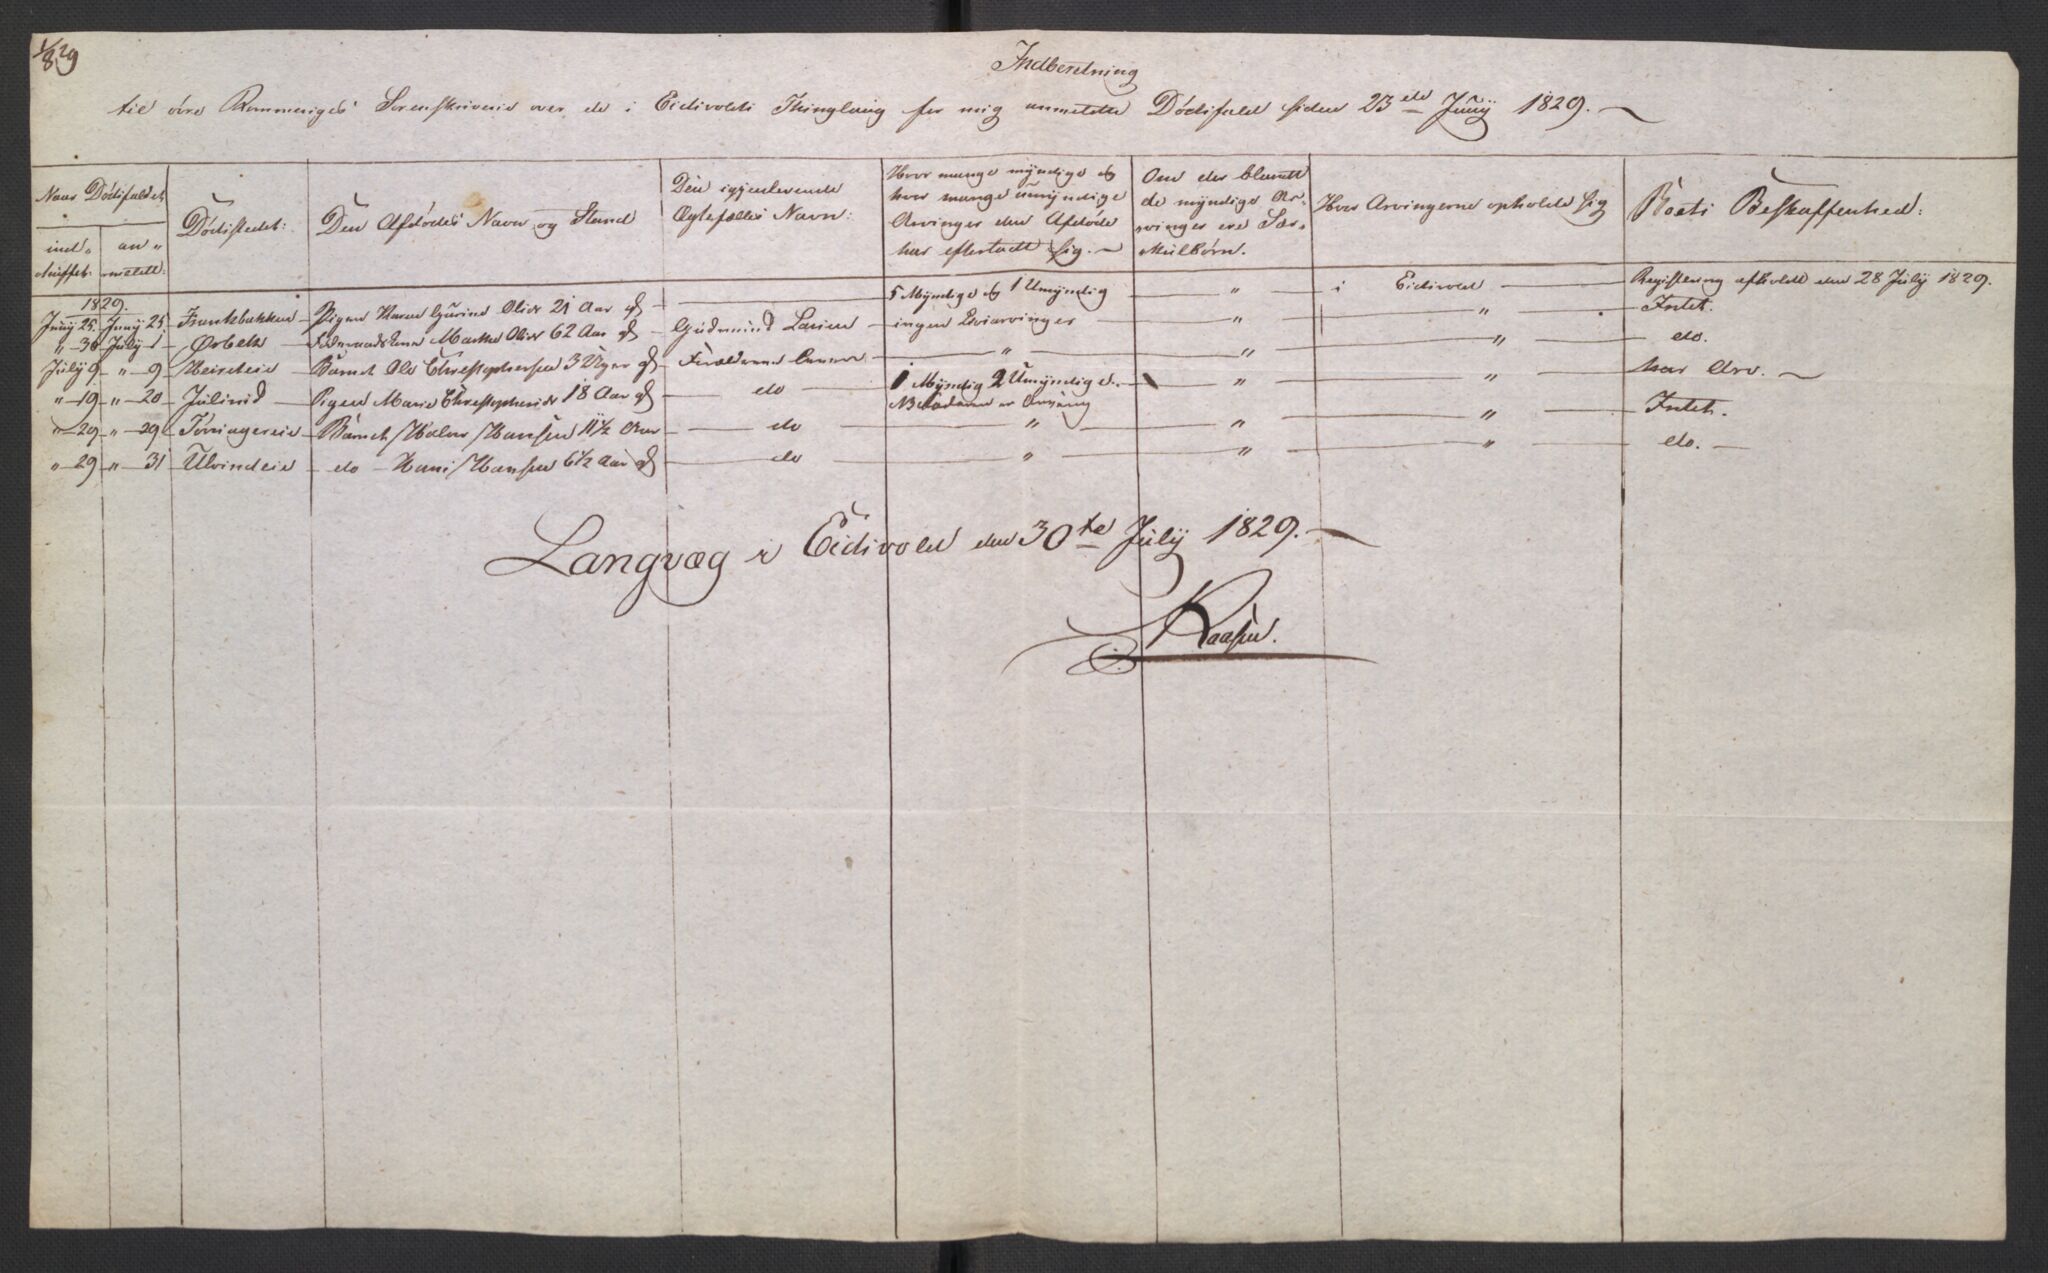 1/8 29
Indberetning
til øvre Rommeriges Sorenskriverie over de i Eidsvolds Thinglaug for mig anmeldte Dødsfald siden 23de Juny 1829.
Naar Dødsfaldet
ind- an-
truffet. meldt.
Dødsstedet:
Den Afdødes Navn og Stand
Den igjenlevende
Ægtefælles Navn:
Hvor mange myndige og
hvor mange umyndige
Arvinger den Afdøde
har efterladt sig.
Om der blandt
de myndige Ar-
vinger ere Sær-
kulbørn.
Hvor Arvingerne opholde sig
Boets Beskaffenhed:
1829.
Juny 25. Juny 25. Frantsbakken Pigen Karen Gurine Olsd 21 Aar gl — 5 Myndige og 1 Umyndig — " — i Eidsvold — Registering afholdt den 28 July 1829.
" 30 July 1 Ørbek Marthe Olsd 62 Aar gl Gudmund Larsen ingen Livsarvinger — " — " — Intet.
July 9 " 9 Barnet Ole Christophersen 3 Uger gl Forældrene — " — " — " — do.
" 19 " 20 Julsrud Pigen Marie Christophersd 18 Aar gl — do — 1 Myndig 2 Umyndige. — " — " — har Arv.
" 29 " 29 Barnet Halvor Hansen 11½ Aar — do — " — " — " — Intet.
" 29 " 31 Ulvindeie do Hans Hansen 6½ Aar gl — do — " — " — " — do.
Langvæg i Eidsvold den 30te July 1829.
Kaasen.